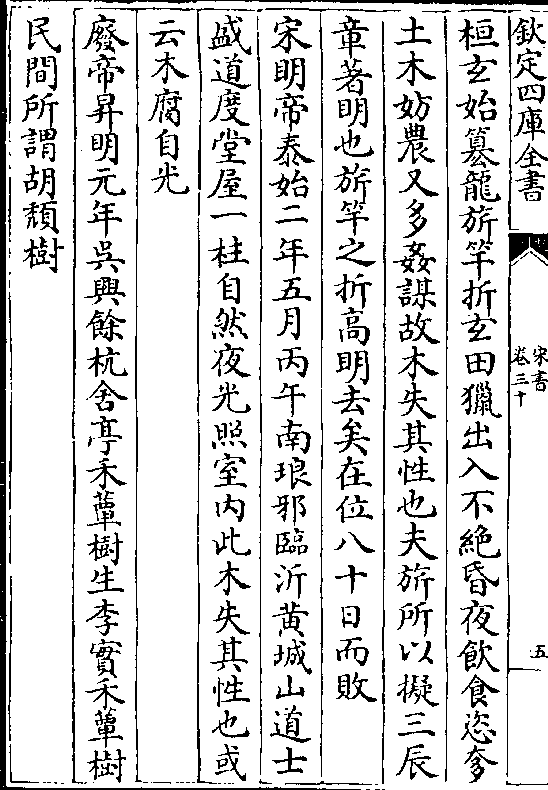 欽定四庫全書
宋書
卷三十
五
桓玄始簒龍旂竿折玄田獵出入不絶昏夜飲食恣奢
土木妨農又多姦謀故木失其性也夫旂所以擬三辰
章著明也旂竿之折高明去矣在位八十日而敗
宋明帝泰始二年五月丙午南琅邪臨沂黄城山道士
盛道度堂屋一柱自然夜光照室内此木失其性也或
云木腐自光
廢帝昇明元年吳興餘杭舍亭禾蕈樹生李實禾蕈樹
民間所謂胡頽樹